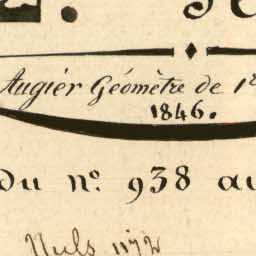 Augier Géomètre de 1re
1846.
du n.º 938 au
Nuls 1172